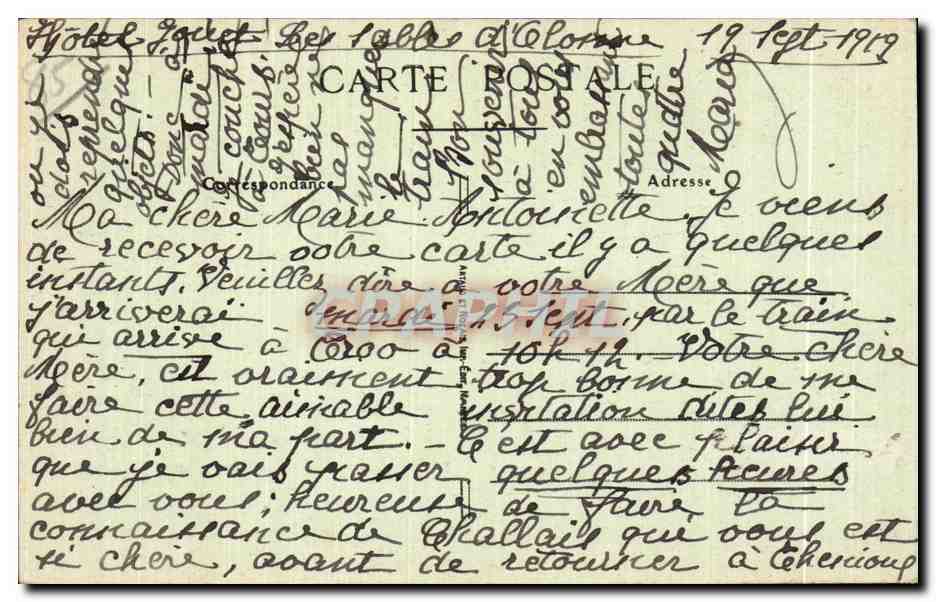 Hôtel Jouet Les Sables d'Olonne 19 Sept 1919
CARTE POSTALE
Correspondance
Adresse
Ma chère Marie-Antoinette, Je viens
de recevoir votre carte il y a quelques
instants. Veuillez dire à votre Mère que
j'arriverai mardi 25 Sept. par le train
qui arrive à Croo à 10h 12. Votre chère
Mère, est vraiment trop bonne de me
faire cette aimable invitation dites lui
bien de ma part. - C'est avec plaisir
que je vais passer quelques heures
avec vous; heureuse de faire la
connaissance de Challais qui vous est
si chère, avant de retourner à
où je
dois
reprendre
quelque
objets.
Donc à
mardi
couche
à Cours.
J'espère
bien ne
pas
manquer
le
train
Bon
souvenir
à tous
en vous
embrassant
toute
Maria